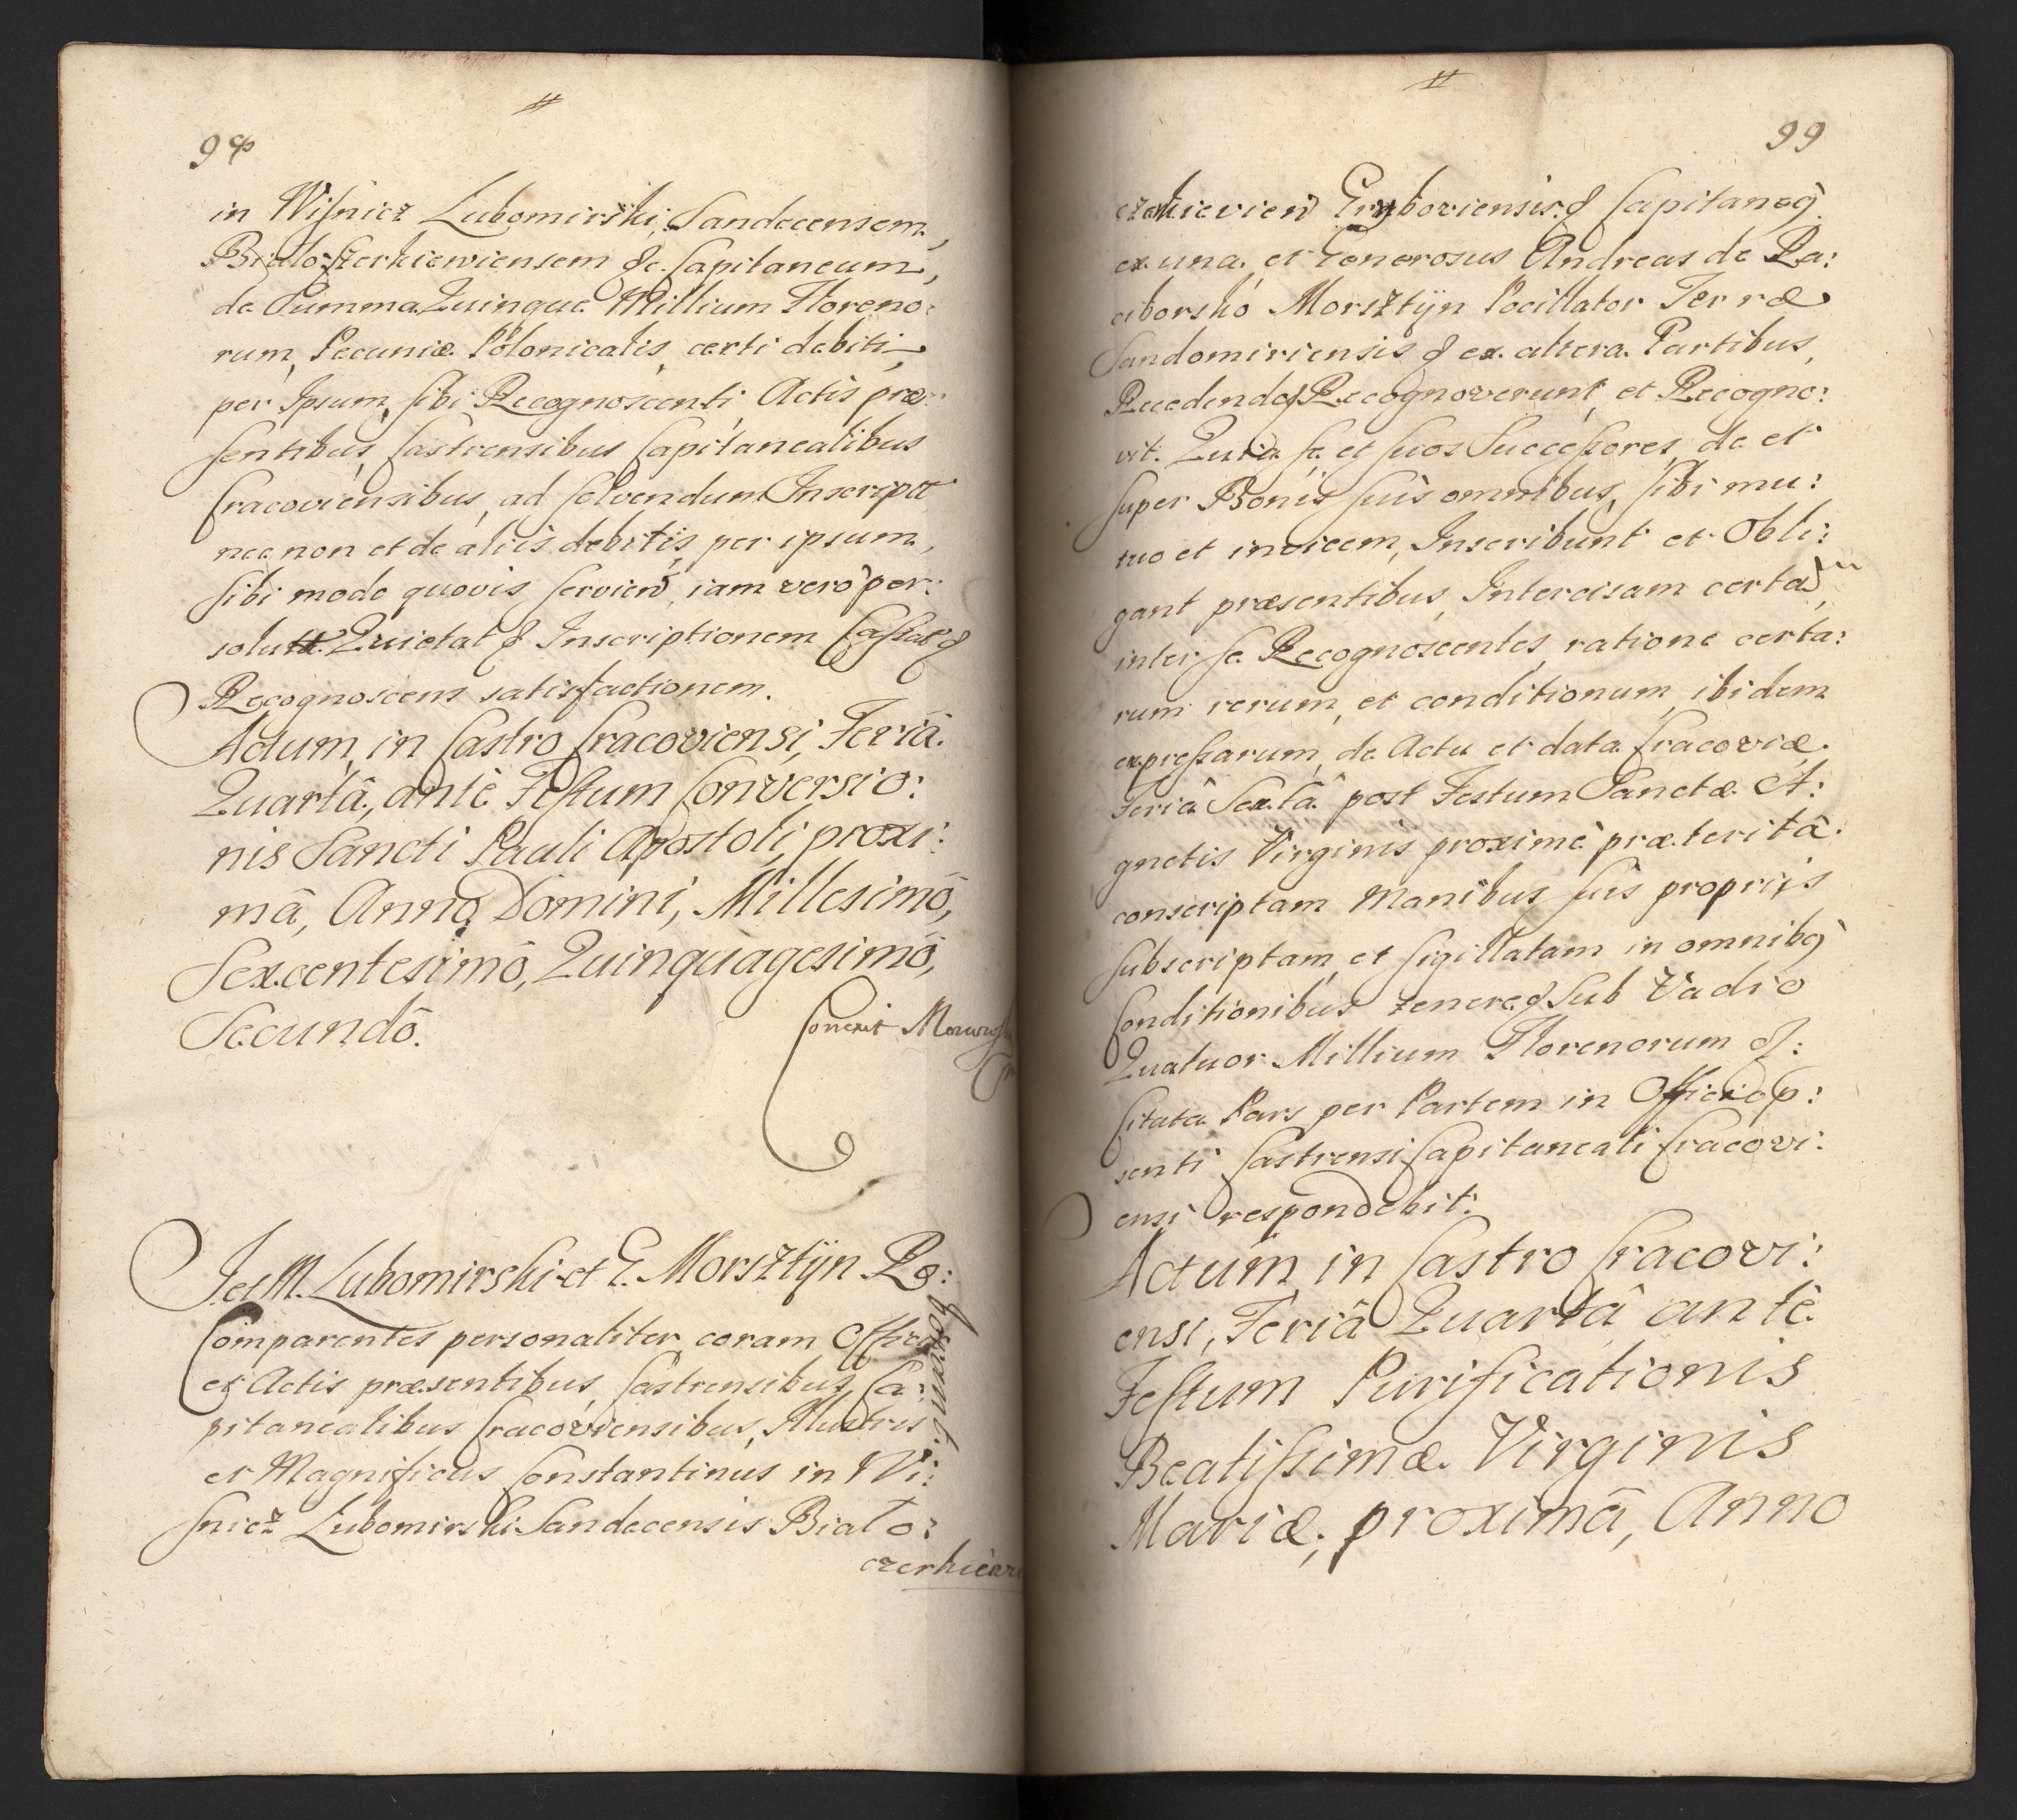 98
in Wiſnicz Lubomirski, Sandecensem,
Białoczerkiewiensem &c. Capitaneum,
de Summa Quinque Millium Floreno:
rum, Pecuniæ Polonicalis, certi debiti,
per Ipsum, ſibi Recognoscenti, Actis præ:
ſentibus, Castrensibus Capitanealibus
Cracoviensibus, ad ſolvendum Inscript
nec non et de aliis debitis, per ipsum,
ſibi modo quovis ſervien, iam verò per:
solut Quietat & Inscriptionem Caſſat &
Recognoscens satisfactionem.
Actum, in Castro Cracoviensi, Feriâ
Quartâ, antè Feſtum Conversio:
nis Sancti Pauli Apostoli, proxi:
mâ, Annō Domini, Millesimō,
Sexcentesimō, Quinquagesimō,
Secundō.
Correxit
J. et M. Lubomirski et G. Morsztÿn Re:
Comparentes personaliter coram Officio
et Actis præsentibus, Castrensibus, Ca:
pitanealibus Cracoviensibus, Illustris
et Magnificus Constantinus in Wi:
ſnicz Lubomirski Sandecensis Biało:
czerkiew
99
czerkievien Grÿboviensis & Capitaneg
ex una, et Generosus Andreas de Ra:
ciborsko Morsztÿn Pocillator Terræ
Sandomiriensis & ex altera Partibus,
Recedendo & Recognoverunt, et Recogno:
vit. Quia ſe et ſuos Succeſsores, de et
ſuper Bonis ſuis omnibus, ſibi mu:
tuo et invicem, Inscribunt et Obli:
gant præsentibus, Intercisam certam,
inter ſe Recognoscentes, ratione certa:
rum rerum, et conditionum, ibidem
expreſsarum, de Actu et data Cracoviæ
Feriâ Sextâ post Festum Sanctæ A:
gnetis Virginis proximè præteritâ
conscriptam Manibus ſuis propriis
ſubscriptam, et ſigillatam in omnibg
Conditionibus tenere & Sub Vadio
Quatuor Millium Florenorum &:
Citata Pars per Partem in Officio p:
senti Castrensi Capitaneali Cracovi:
ensi respondebit.
Actum in Castro Cracovi:
ensi, Feriâ Quartâ antè
Feſtum Purificationis
Beatiſsimæ Virginis
Mariæ, proximâ, Anno